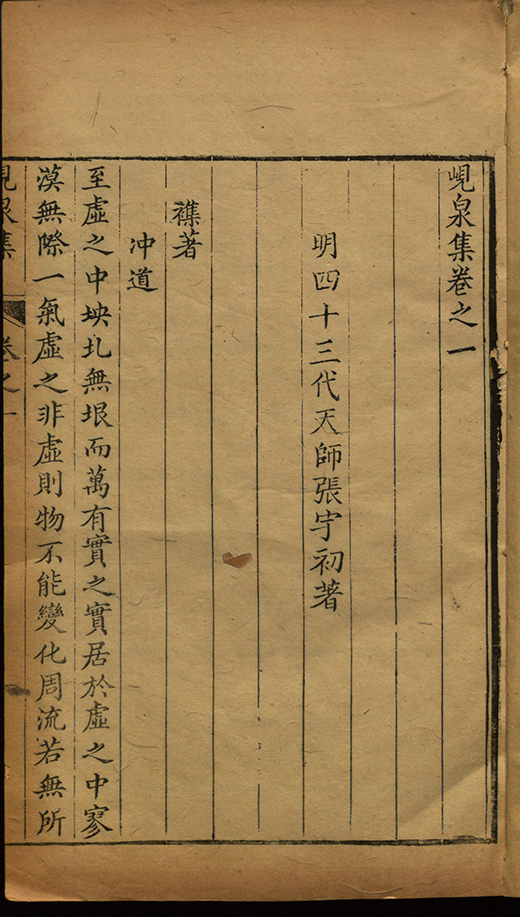 峴泉集卷之一
明四十三代天師張宇初著
襍著
冲道
至虛之中坱圠無垠而萬有實之實居於虛之中寥
漠無際一氣虛之非虛則物不能變化周流若無所
峴泉集 卷之一